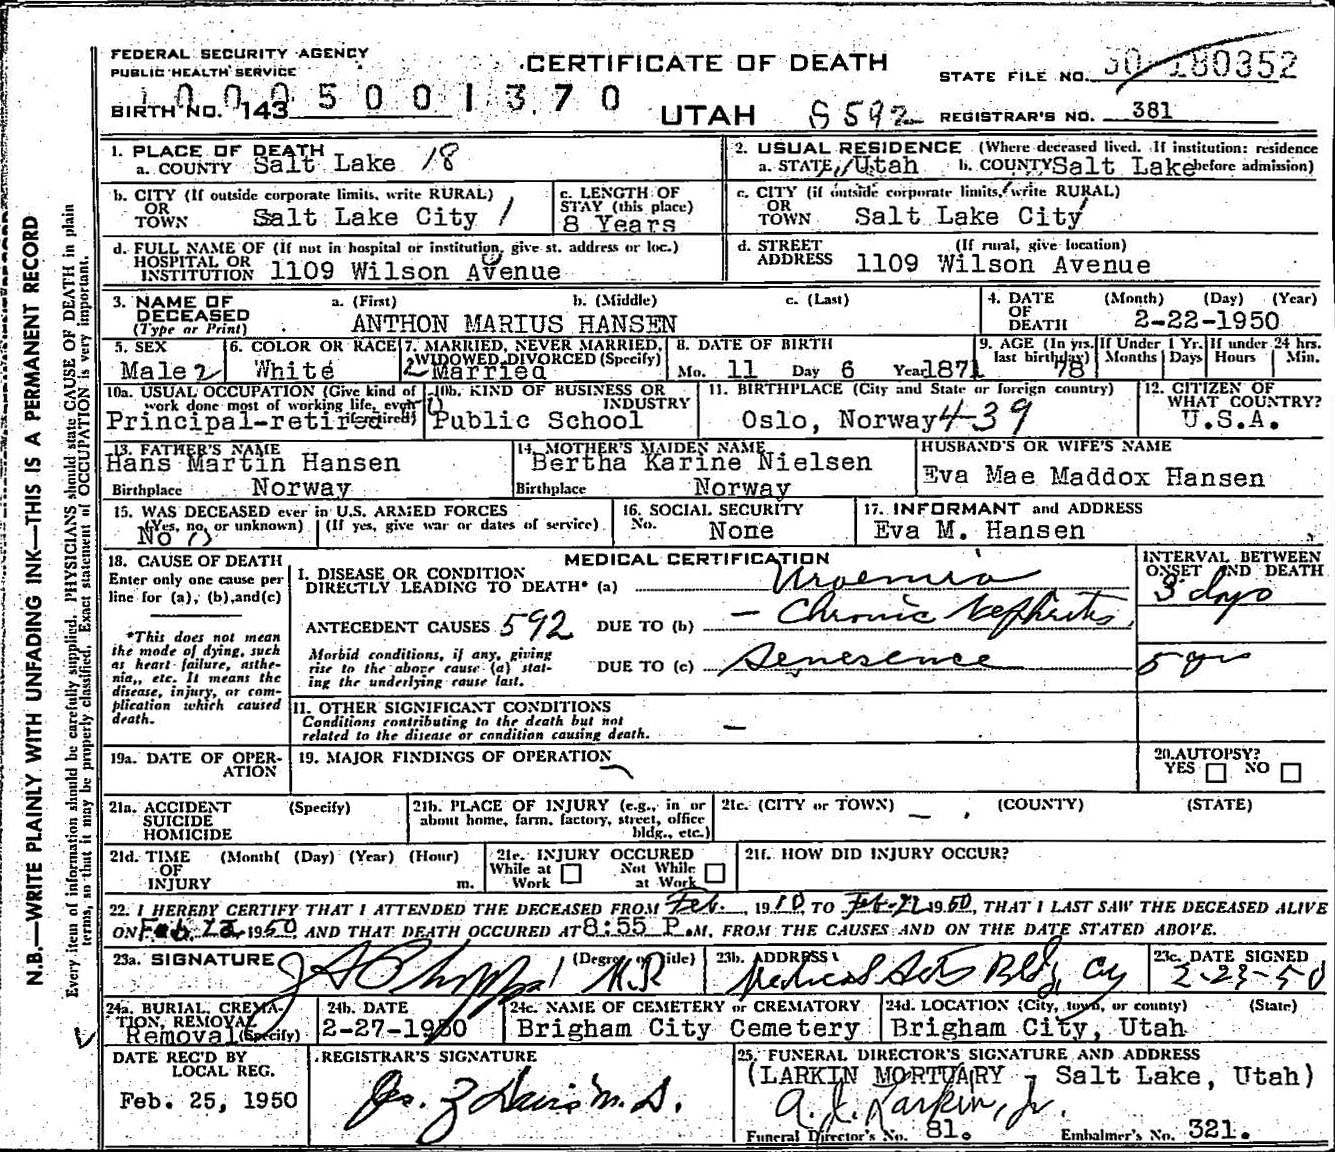 FEDERAL SECURITY AGENCY
PUBLIC HEALTH SERVICE
CERTIFICATE OF DEATH
STATE FILE NO. 50 180352
BIRTH NO. 143
1 0 0 0 5 0 0 1 3 7 0
UTAH S 592
REGISTRAR'S NO. 381
1. PLACE OF DEATH
a. COUNTY Salt Lake 18
2. USUAL RESIDENCE (Where deceased lived. If institution: residence
a. STATE Utah b. COUNTY Salt Lake before admission)
b. CITY (If outside corporate limits, write RURAL)
OR
TOWN Salt Lake City 1
c. LENGTH OF
STAY (this place)
8 Years
c. CITY (if outside corporate limits, write RURAL)
OR
TOWN Salt Lake City
d. FULL NAME OF (If not in hospital or institution, give st. address or loc.)
HOSPITAL OR
INSTITUTION 1109 Wilson Avenue
d. STREET (If rural, give location)
ADDRESS 1109 Wilson Avenue
3. NAME OF DECEASED
(Type or Print)
a. (First) b. (Middle) c. (Last)
ANTHON MARIUS HANSEN
4. DATE OF DEATH (Month) (Day) (Year)
2-22-1950
5. SEX
Male 2
6. COLOR OR RACE
White
7. MARRIED, NEVER MARRIED,
WIDOWED, DIVORCED (Specify)
2 Married
8. DATE OF BIRTH
Mo. 11 Day 6 Year 1871
9. AGE (In yrs. last birthday)
78
If Under 1 Yr. Months Days
If under 24 hrs. Hours Min.
10a. USUAL OCCUPATION (Give kind of
work done most of working life, even
if retired)
Principal-retired
10b. KIND OF BUSINESS OR
INDUSTRY
Public School
11. BIRTHPLACE (City and State or foreign country)
Oslo, Norway 439
12. CITIZEN OF
WHAT COUNTRY?
U.S.A.
13. FATHER'S NAME
Hans Martin Hansen
Birthplace Norway
14. MOTHER'S MAIDEN NAME
Bertha Karine Nielsen
Birthplace Norway
HUSBAND'S OR WIFE'S NAME
Eva Mae Maddox Hansen
15. WAS DECEASED ever in U.S. ARMED FORCES
(Yes, no, or unknown) (If yes, give war or dates of service)
No
16. SOCIAL SECURITY
No. None
17. INFORMANT and ADDRESS
Eva M. Hansen
18. CAUSE OF DEATH
Enter only one cause per
line for (a), (b), and (c)
*This does not mean
the mode of dying, such
as heart failure, asthe-
nia, etc. It means the
disease, injury, or com-
plication which caused
death.
MEDICAL CERTIFICATION
I. DISEASE OR CONDITION
DIRECTLY LEADING TO DEATH* (a) Uraemia
ANTECEDENT CAUSES 592 DUE TO (b) — Chronic Nephritis
Morbid conditions, if any, giving
rise to the above cause (a) stat-
ing the underlying cause last.
DUE TO (c) Senesence
INTERVAL BETWEEN
ONSET AND DEATH
3 days
5 yrs
11. OTHER SIGNIFICANT CONDITIONS
Conditions contributing to the death but not
related to the disease or condition causing death.
—
19a. DATE OF OPER-
ATION
19. MAJOR FINDINGS OF OPERATION
20. AUTOPSY?
YES NO
21a. ACCIDENT (Specify)
SUICIDE
HOMICIDE
21b. PLACE OF INJURY (e.g., in or
about home, farm, factory, street, office
bldg., etc.)
21c. (CITY or TOWN) (COUNTY) (STATE)
21d. TIME (Month) (Day) (Year) (Hour)
OF
INJURY m.
21e. INJURY OCCURED
While at Work
Not While at Work
21f. HOW DID INJURY OCCUR?
22. I HEREBY CERTIFY THAT I ATTENDED THE DECEASED FROM Feb., 1910, TO Feb-22 1950, THAT I LAST SAW THE DECEASED ALIVE
ON Feb. 22, 1950 AND THAT DEATH OCCURED AT 8:55 P.M, FROM THE CAUSES AND ON THE DATE STATED ABOVE.
23a. SIGNATURE (Degree or title) M.D.
23b. ADDRESS
Medical Arts Bldg, City
23c. DATE SIGNED
2-23-50
24a. BURIAL, CREMA-
TION, REMOVAL
(Specify)
Removal
24b. DATE
2-27-1950
24c. NAME OF CEMETERY or CREMATORY
Brigham City Cemetery
24d. LOCATION (City, town, or county) (State)
Brigham City, Utah
DATE REC'D BY
LOCAL REG.
Feb. 25, 1950
REGISTRAR'S SIGNATURE
Davis M.D.
25. FUNERAL DIRECTOR'S SIGNATURE AND ADDRESS
(LARKIN MORTUARY - Salt Lake, Utah)
A. J. Larkin, Jr.
Funeral Director's No. 81. Embalmer's No. 321.
N.B.—WRITE PLAINLY WITH UNFADING INK—THIS IS A PERMANENT RECORD
Every item of information should be carefully supplied. PHYSICIANS should state CAUSE OF DEATH in plain
terms, so that it may be properly classified. Exact statement of OCCUPATION is very important.